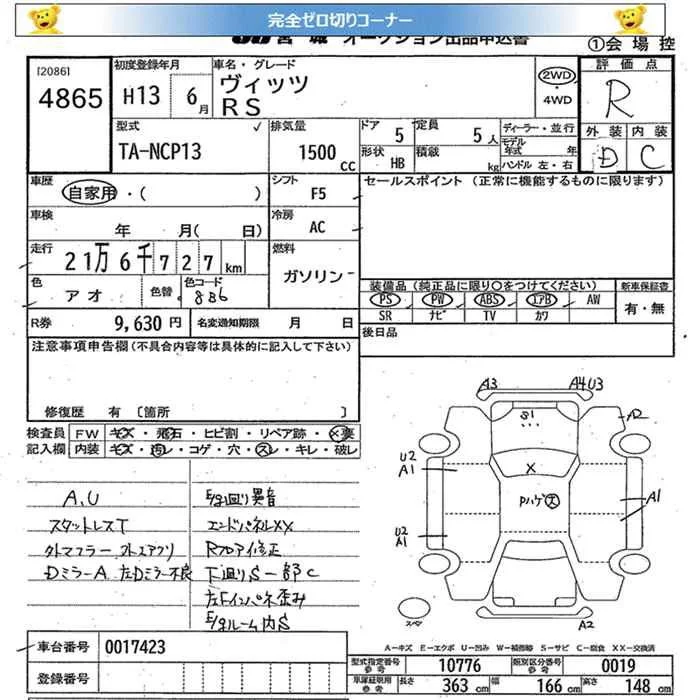 完全ゼロ切りコーナー
JU 宮城 オークション出品申込書
①会場控
[2086]
4865
初度登録年月
H13 6月
車名・グレード
ヴィッツ
RS
2WD
・
4WD
評価点
R
外装 内装
D C
型式 ✓
TA-NCP13
排気量
1500 cc
ドア 5
定員 5人
形状 HB
積載 kg
ディーラー・並行
モデル年式 年
ハンドル 左・右
車歴
自家用・( )
シフト F5
セールスポイント (正常に機能するものに限ります)
車検
年 月( 日)
冷房
AC
走行
21万6千727km
燃料
ガソリン
色 アオ
色替
色コード 8B6
装備品 (純正品に限り○をつけてください)
新車保証書
PS PW ABS エアB AW
有・無
SR ナビ TV カワ
R券 9,630円
名変通知期限 月 日
後日品
注意事項申告欄(不具合内容等は具体的に記入して下さい)
修復歴 有 [箇所 ]
検査員
記入欄
FW キズ・飛石・ヒビ割・リペア跡・X要
内装 キズ・汚レ・コゲ・穴・スレ・キレ・破レ
A.U
スタットレスT
外マフラー 外エアクリ
DミラーA 左Dミラー不良
E/g廻り異音
エンドパネルXX
Rフロアイ修正
下廻りS一部C
左Fインパネ歪み
E/gルーム内S
A3
A4U3
S1
A2
U2
A1
X
Pハゲ ス
A1
U2
A1
スペ
A2
A-キズ E-エクボ U-凹み W-補修跡 S-サビ C-腐食 XX-交換済
車台番号 0017423
登録番号
型式指定番号 参考 10776
類別区分番号 参考 0019
車庫証明用 参考
長さ 363cm
幅 166cm
高さ 148cm